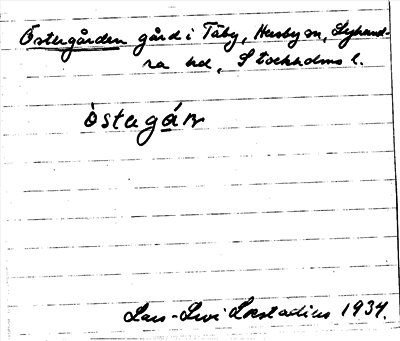 Östergården gård i Täby, Husby sn, Lyhund-
ra hd, Stockholms l.
östergáɴ
Lars-Levi Læstadius 1934.